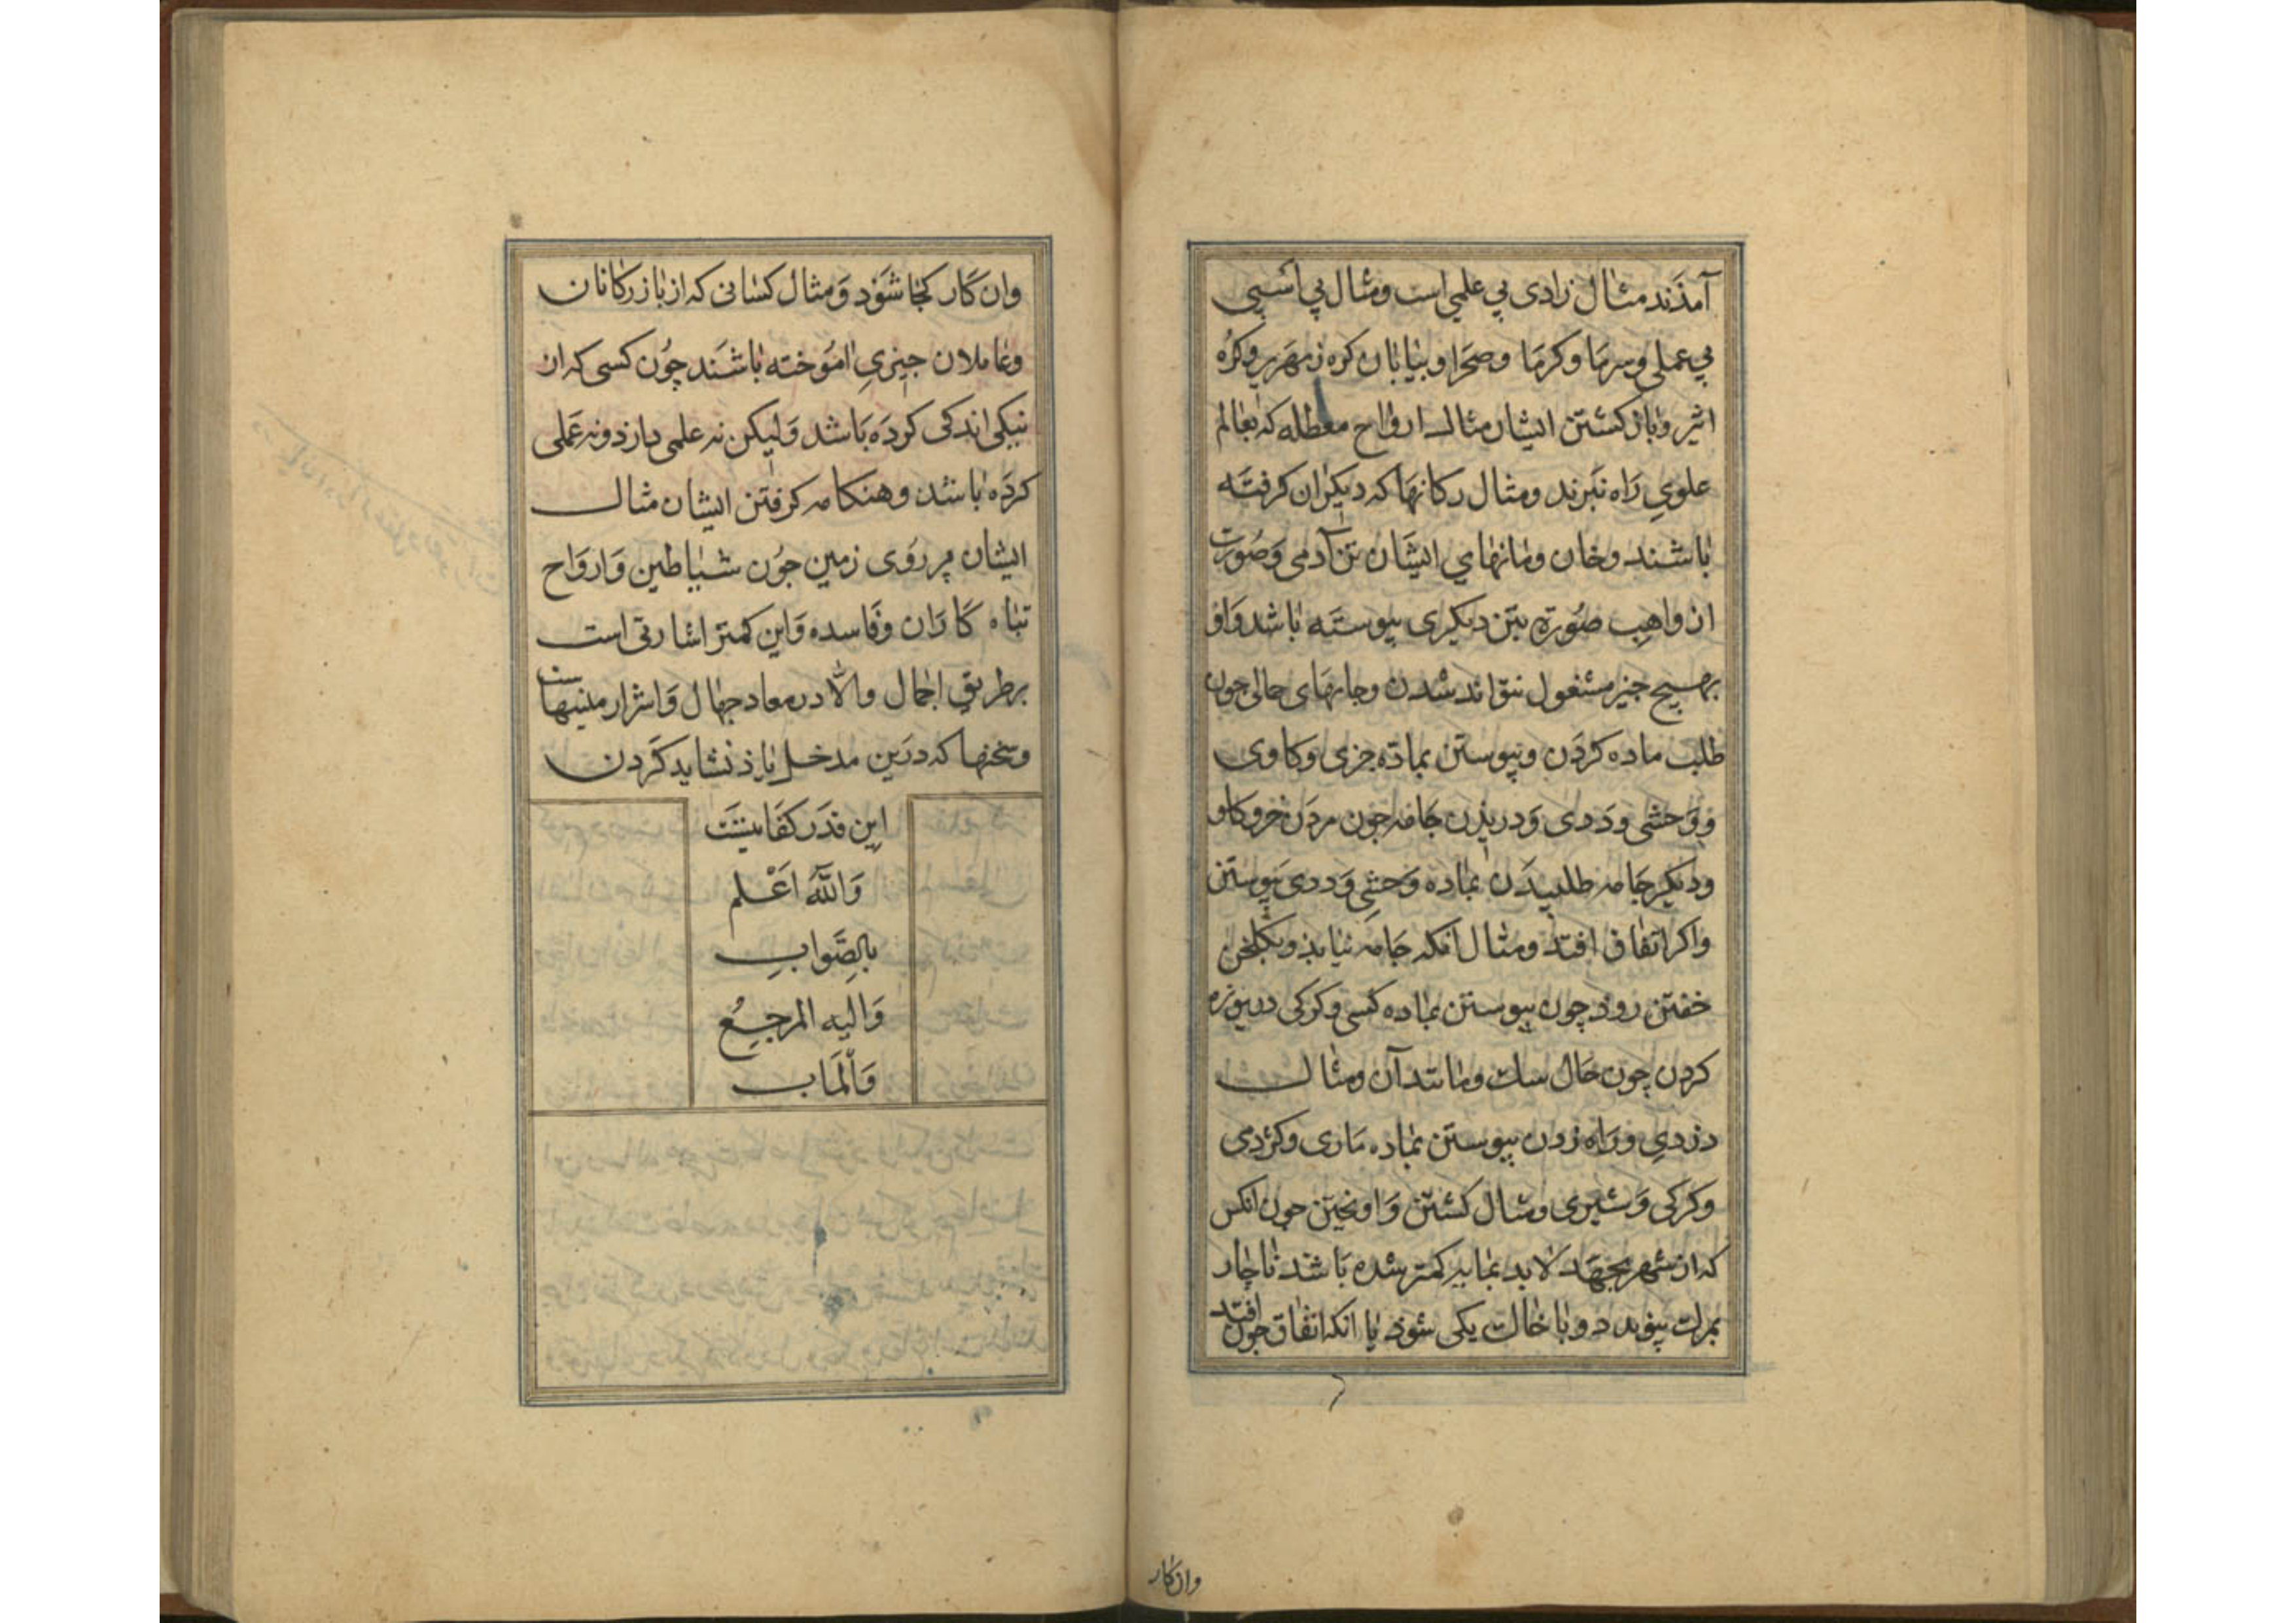 آمدند مثال زادی بی علمی است ومثال بی اسبی
بی عملی و سرما وکرما وصحرا و بیابان کره زمهریر وکره
اثیر و باز کشتن ایشان مثال ارواح معطله که بعالم
علوی راه نبرند ومثال دکانها که دیکران کرفته
باشند وخان ومانهای ایشان تن آدمی وصورت
از واهب صورة بتن دیکری پیوسته باشد واو
بهیچ چیز مشغول نتواند شدن وجایهای خالی جون
طلب ماده کردن وپیوستن بماده خری وکاوی
ووحشی وددی ودریدن جامه جون مردن خر وکاو
ودیکر جامه طلبیدن بماده وحشی وددی پیوستن
واکر اتفاق افتد ومثال انکه جامه نیابد وبکلخن
خفتن رود چون پیوستن بماده کسی وکرکی دریوزه
کردن چون حال سک ومانند آن ومثال
دزدی وراه زدن پیوستن بماده ماری وکژدمی
وکرکی وشیری ومثال کشتن واویختن جون انکس
که از شهر بجهد لابد بمایه کمتر شده باشد ناچار
پیوندد وبا خاک یکی شود یا انکه اتفاق جون افتد
وان کار
وان کار کجا شود ومثال کسانی که از بازرکانان
وعاملان جیزی اموخته باشند چون کسی که ان
نیکی اندکی کرده باشد ولیکن نه علمی دارد ونه عملی
کرده باشد وهنکامه کرفتن ایشان مثال
ایشان بر روی زمین جون شیاطین وارواح
تباه کاران وفاسده واین کمتر اشارتی است
برطریق اجمال والا در معاد جهال واشرار منیبهاست
وسخنها که درین مدخل یاد نشاید کردن
این قدر کفایتست
والله اعلم
بالصواب
والیه المرجع
والماب